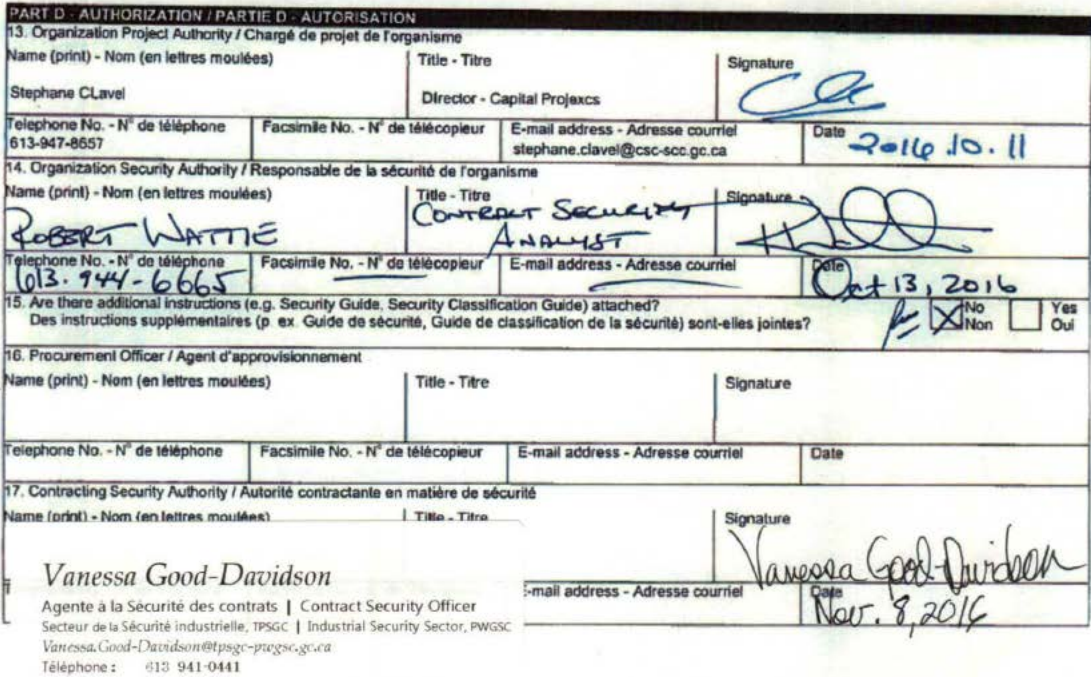 PART D - AUTHORIZATION / PARTIE D - AUTORISATION
13. Organization Project Authority / Chargé de projet de l'organisme
Name (print) - Nom (en lettres moulées) Title - Titre Signature
Stephane CLavel Director - Capital Projexcs
Telephone No. - N° de téléphone Facsimile No. - N° de télécopieur E-mail address - Adresse courriel Date
613-947-8657 stephane.clavel@csc-scc.gc.ca 2016.10.11
14. Organization Security Authority / Responsable de la sécurité de l'organisme
Name (print) - Nom (en lettres moulées) Title - Titre Signature
ROBERT WATTIE CONTRACT SECURITY ANALYST
Telephone No. - N° de téléphone Facsimile No. - N° de télécopieur E-mail address - Adresse courriel Date
613.944-6665 Oct 13, 2016
15. Are there additional instructions (e.g. Security Guide, Security Classification Guide) attached?
Des instructions supplémentaires (p. ex. Guide de sécurité, Guide de classification de la sécurité) sont-elles jointes?
No Non Yes Oui
16. Procurement Officer / Agent d'approvisionnement
Name (print) - Nom (en lettres moulées) Title - Titre Signature
Telephone No. - N° de téléphone Facsimile No. - N° de télécopieur E-mail address - Adresse courriel Date
17. Contracting Security Authority / Autorité contractante en matière de sécurité
Name (print) - Nom (en lettres moulées) Title - Titre Signature
Vanessa Good-Davidson
Vanessa Good-Davidson
Agente à la Sécurité des contrats | Contract Security Officer
-mail address - Adresse courriel Date
Nov. 8, 2016
Secteur de la Sécurité industrielle, TPSGC | Industrial Security Sector, PWGSC
Vanessa.Good-Davidson@tpsgc-pwgsc.gc.ca
Téléphone : 613 941-0441